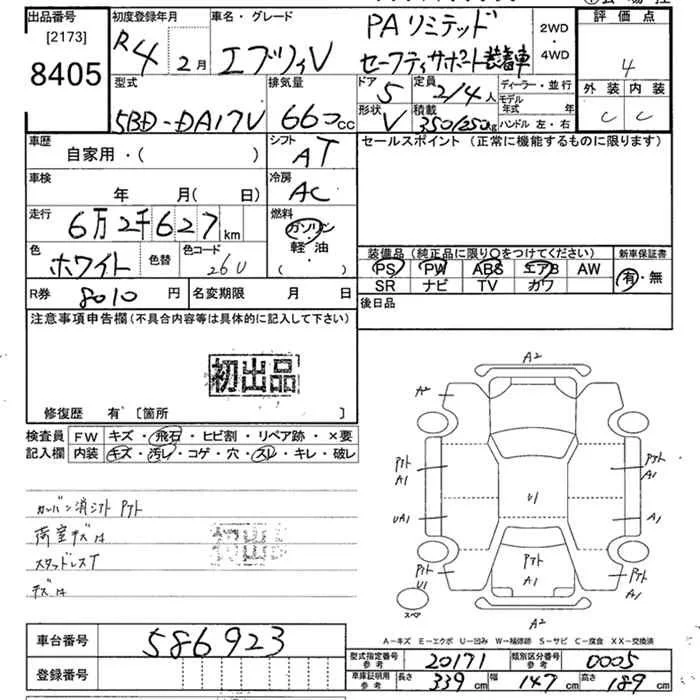 出品番号 初度登録年月 車名・グレード PAリミテッド 2WD・4WD 評価点
[2173] R4 2月 エブリィV セーフティサポート装着車 4
8405 型式 排気量 ドア 5 定員 2/4人 ディーラー・並行 外装 内装
5BD-DA17V 660cc 形状 V 積載 350/250kg モデル年式 年 ハンドル 左・右 C C
車歴 シフト セールスポイント (正常に機能するものに限ります)
自家用・( ) AT
車検 冷房
年 月(日) AC
走行 6万2千627km 燃料
ガソリン
色 ホワイト 色替 色コード 26U 軽・油 装備品 (純正品に限り○をつけてください) 新車保証書
・( ) PS PW ABS エアB AW 有・無
R券 8010円 名変期限 月 日 SR ナビ TV カワ
注意事項申告欄 (不具合内容等は具体的に記入して下さい) 後日品
初出品
修復歴 有 [箇所 ]
検査員 FW キズ・飛石・ヒビ割・リペア跡・×要
記入欄 内装 キズ・汚レ・コゲ・穴・スレ・キレ・破レ
A2
A2
プトA1
プトA1
U1
UA1
A1
プトU1
プトA1
プトA1
スペア
A2
荷室キズ有
スタッドレスT
初出品
A-キズ E-エクボ U-凹み W-補修跡 S-サビ C-腐食 XX-交換済
車台番号 586923
型式指定番号 参考 20171 類別区分番号 参考 0005
登録番号
車庫証明用 参考 長さ 339cm 幅 147cm 高さ 189cm